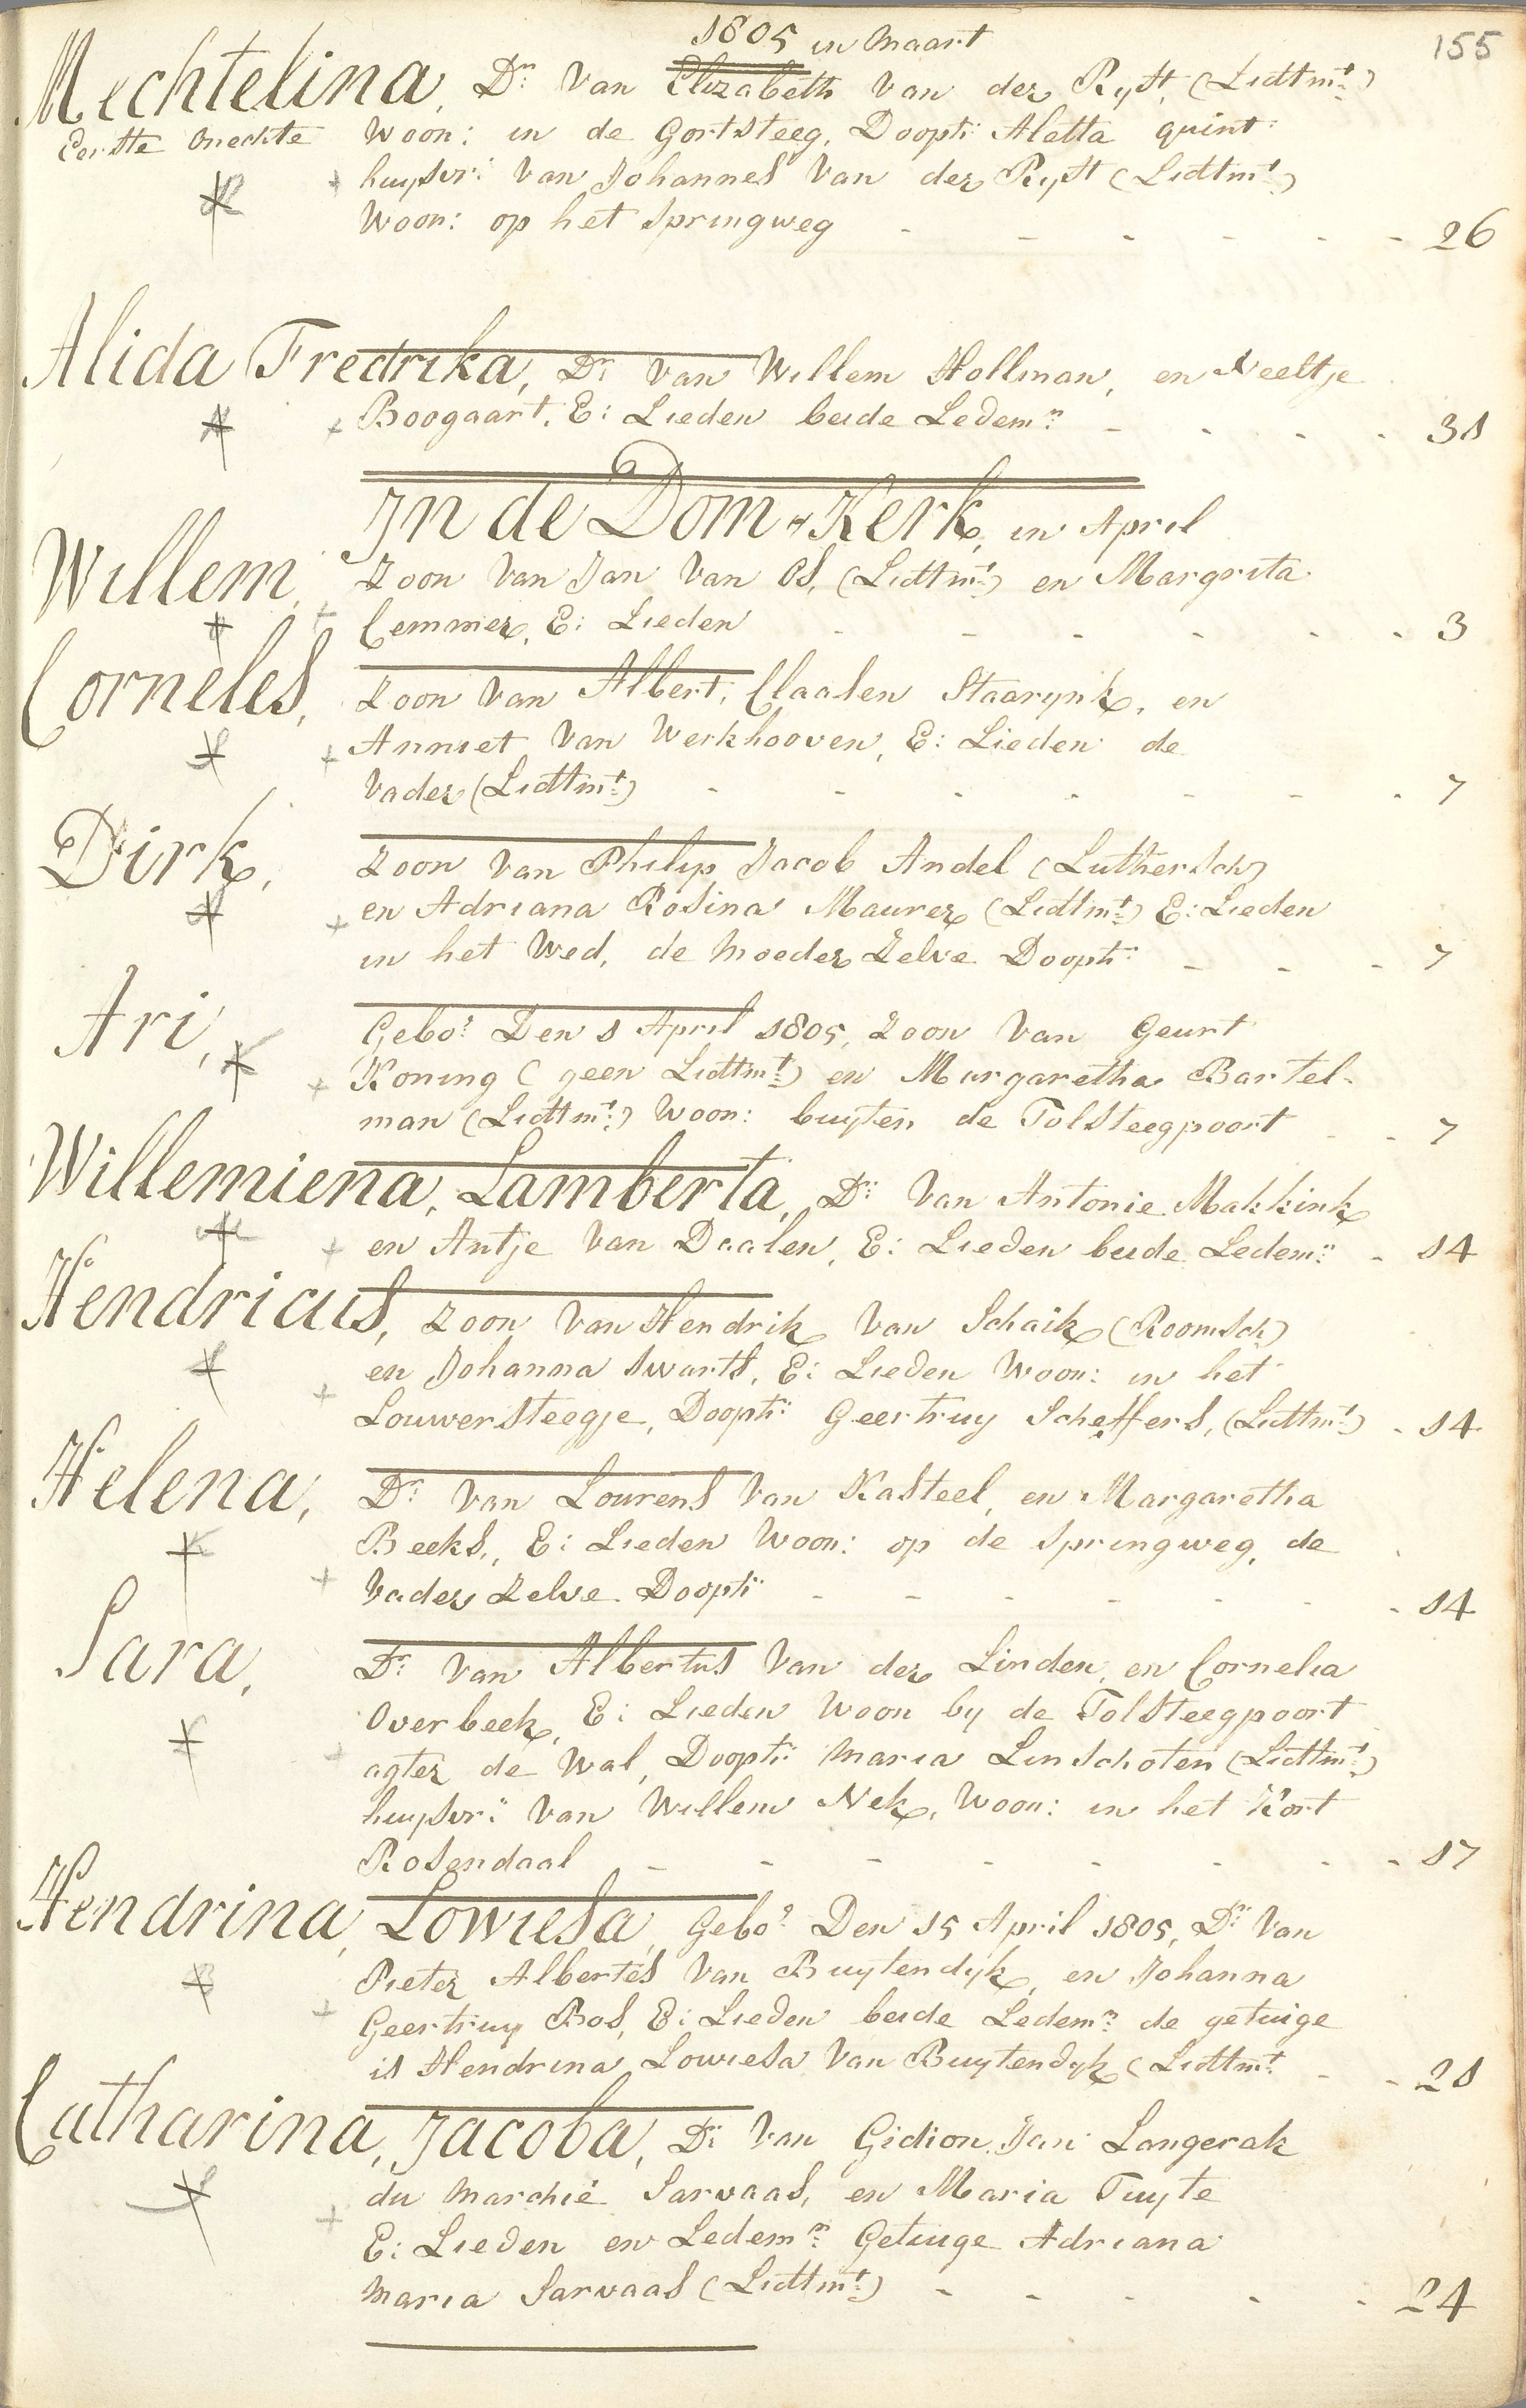 1805 in Maart
155
Mechtelina, Dr: Van Elizabeth Van der Ryst, (Lidtmt:)
Eerste onechte Woon: in de Gortsteeg, Doopti: Aletta quint:
huysvr: Van Johannes Van der Ryst (Lidtmt:)
Woon: op het Springweg - - - - - - 26
Alida Fredrika, Dr: Van Willem Hollman, en Neeltje
Boogaart, E: Lieden beide Ledemn: - - - - 31
In de Dom-Kerk, in April
Willem, Zoon Van Jan Van Os, (Lidtmt:) en Margrita
Cemmer, E: Lieden - - - - - - 3
Corneles, Zoon Van Albert, Claasen Staarynk, en
Anniet Van Werkhooven, E: Lieden de
Vader (Lidtmt:) - - - - - - - 7
Dirk, Zoon Van Philip Jacob Andel (Luthersch)
en Adriana Rosina Maurer (Lidtmt:) E: Lieden
in het Wed, de Moeder Zelve Doopti: - - - 7
Ari, Gebor: Den 1 April 1805, Zoon Van Geurt
Koning (geen Lidtmt:) en Margaretha Bartel-
man (Lidtmt:) Woon: buyten de Tolsteegpoort - - 7
Willemiena, Lamberta, Dr: Van Antonie Makkink
en Antje Van Daalen, E: Lieden beide Ledemn: - 14
Hendricus, Zoon Van Hendrik Van Schaik (Roomsch)
en Johanna Swarts, E: Lieden Woon: in het
Louwersteegje, Doopti: Geertruy Scheffers, (Lidtmt:) - 14
Helena, Dr: Van Lourens Van Kasteel, en Margaretha
Beeks,, E: Lieden Woon: op de Springweg, de
Vader Zelve Doopti: - - - - - - - 14
Sara, Dr: Van Albertus Van der Linden, en Cornelia
Overbeek, E: Lieden Woon by de Tolsteegpoort
agter de Wal, Doopti: Maria Linschoten (Lidtmt:)
huysvr: Van Willem Nek, Woon: in het Kort
Rosendaal - - - - - - - - 17
Hendrina, Lowiesa, Gebor: Den 15 April 1805, Dr: Van
Pieter Albertes Van Buytendyk, en Johanna
Geertruy Bos, E: Lieden beide Ledemn: de getuige
is Hendrina Lowiesa Van Buytendyk (Lidtmt: - - 21
Catharina, Jacoba, Dr: Van Gidion Jan Langerak
du Marchie Sarvaas, en Maria Tuyte
E: Lieden en Ledemn: Getuige Adriana
Maria Sarvaas (Lidtmt:) - - - - - 24